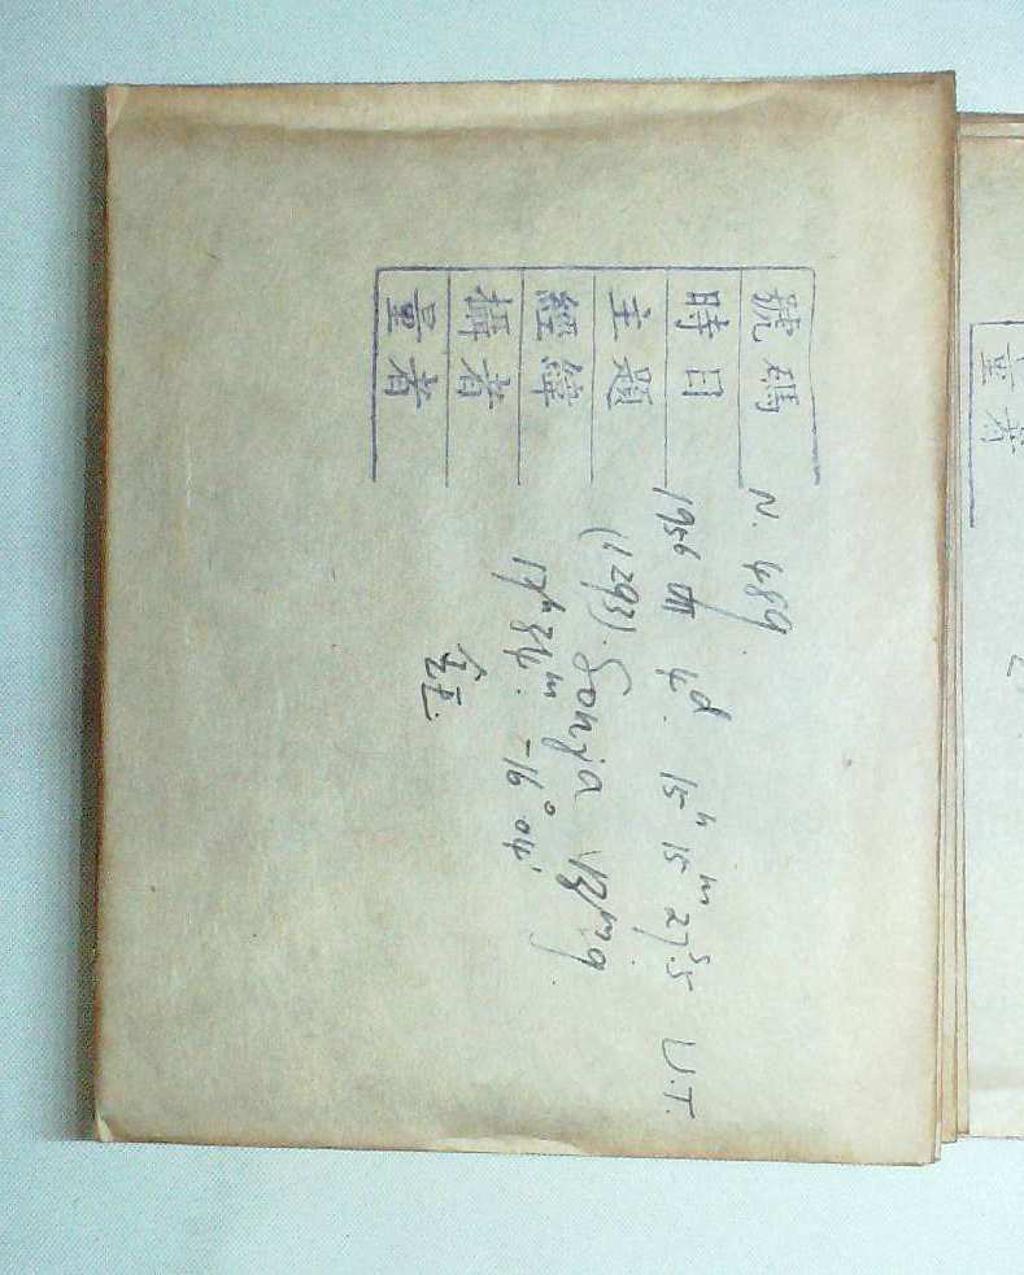 號碼 N. 489
時日 1956 VII 4d. 15h 15m 27s.5 U.T.
主題 (1293). Sonja
經緯 17h 34m. -16° 04'
攝者
量者
量者